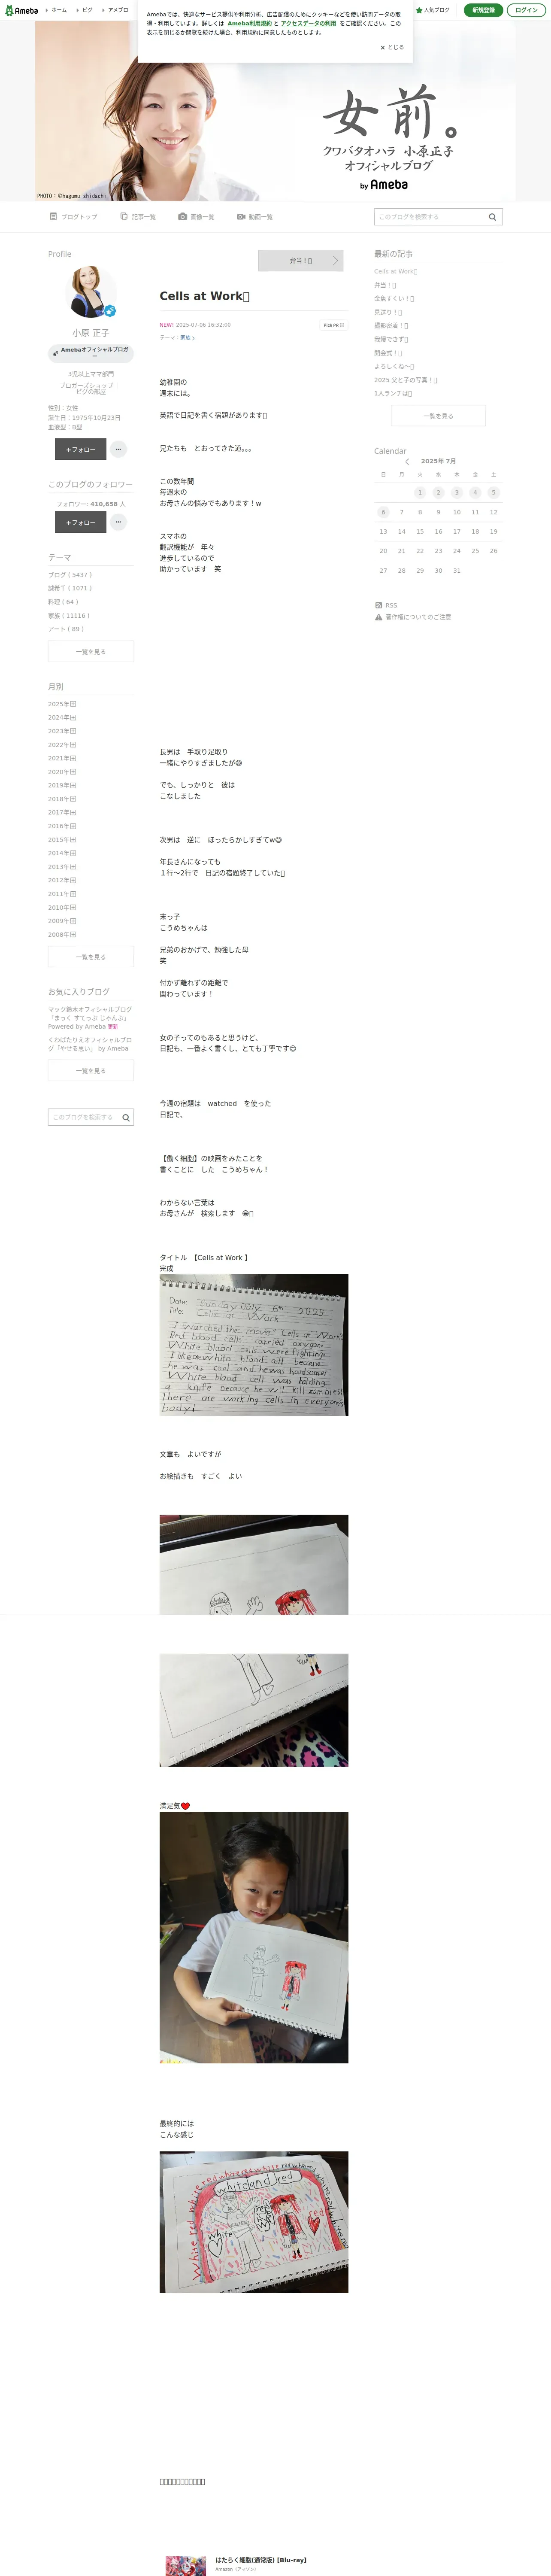 Ameba
ホーム
ピグ
アメブロ
Amebaでは、快適なサービス提供や利用分析、広告配信のためにクッキーなどを使い訪問データの取
得・利用しています。詳しくは Ameba利用規約 と アクセスデータの利用 をご確認ください。この
表示を閉じるか閲覧を続けた場合、利用規約に同意したものとします。
× とじる
人気ブログ
新規登録
ログイン
女前。
クワバタオハラ 小原正子
オフィシャルブログ
by Ameba
PHOTO：©hagumu shidachi
ブログトップ
記事一覧
画像一覧
動画一覧
このブログを検索する
Profile
小原 正子
Amebaオフィシャルブロガー
3児以上ママ部門
ブロガーズショップ｜
ピグの部屋
性別：女性
誕生日：1975年10月23日
血液型：B型
+フォロー
このブログのフォロワー
フォロワー: 410,658 人
+フォロー
テーマ
ブログ ( 5437 )
誠希千 ( 1071 )
料理 ( 64 )
家族 ( 11116 )
アート ( 89 )
一覧を見る
月別
2025年
2024年
2023年
2022年
2021年
2020年
2019年
2018年
2017年
2016年
2015年
2014年
2013年
2012年
2011年
2010年
2009年
2008年
一覧を見る
お気に入りブログ
マック鈴木オフィシャルブログ
「まっく すてっぷ じゃんぷ」
Powered by Ameba 更新
くわばたりえオフィシャルブロ
グ「やせる思い」 by Ameba
一覧を見る
このブログを検索する
弁当！
Cells at Work
NEW! 2025-07-06 16:32:00
Pick PR
テーマ：家族
幼稚園の
週末には。
英語で日記を書く宿題があります
兄たちも　とおってきた道。。。
この数年間
毎週末の
お母さんの悩みでもあります！w
スマホの
翻訳機能が　年々
進歩しているので
助かっています　笑
長男は　手取り足取り
一緒にやりすぎましたが😅
でも、しっかりと　彼は
こなしました
次男は　逆に　ほったらかしすぎてw😅
年長さんになっても
１行〜2行で　日記の宿題終了していた
末っ子
こうめちゃんは
兄弟のおかげで、勉強した母
笑
付かず離れずの距離で
関わっています！
女の子ってのもあると思うけど、
日記も、一番よく書くし、とても丁寧です😊
今週の宿題は　watched　を使った
日記で、
【働く細胞】の映画をみたことを
書くことに　した　こうめちゃん！
わからない言葉は
お母さんが　検索します　😁
タイトル　【Cells at Work 】
完成
Date: Sunday July 6th 2025
Title: Cells at Work
I watched the movie "Cells at Work"
Red blood cells carried oxygen.
White blood cells were fighting.
I like white blood cell because
he was cool and handsome.
White blood cell was holding
a knife because we will kill zombies!
There are working cells in everyone's
body!
文章も　よいですが
お絵描きも　すごく　よい
満足気❤️
最終的には
こんな感じ
white and red
white
red
はたらく細胞(通常版) [Blu-ray]
Amazon（アマゾン）
最新の記事
Cells at Work
弁当！
金魚すくい！
見送り！
撮影密着！
我慢できず
開会式！
よろしくね〜
2025 父と子の写真！
1人ランチは
一覧を見る
Calendar
2025年 7月
日 月 火 水 木 金 土
1 2 3 4 5
6 7 8 9 10 11 12
13 14 15 16 17 18 19
20 21 22 23 24 25 26
27 28 29 30 31
RSS
著作権についてのご注意